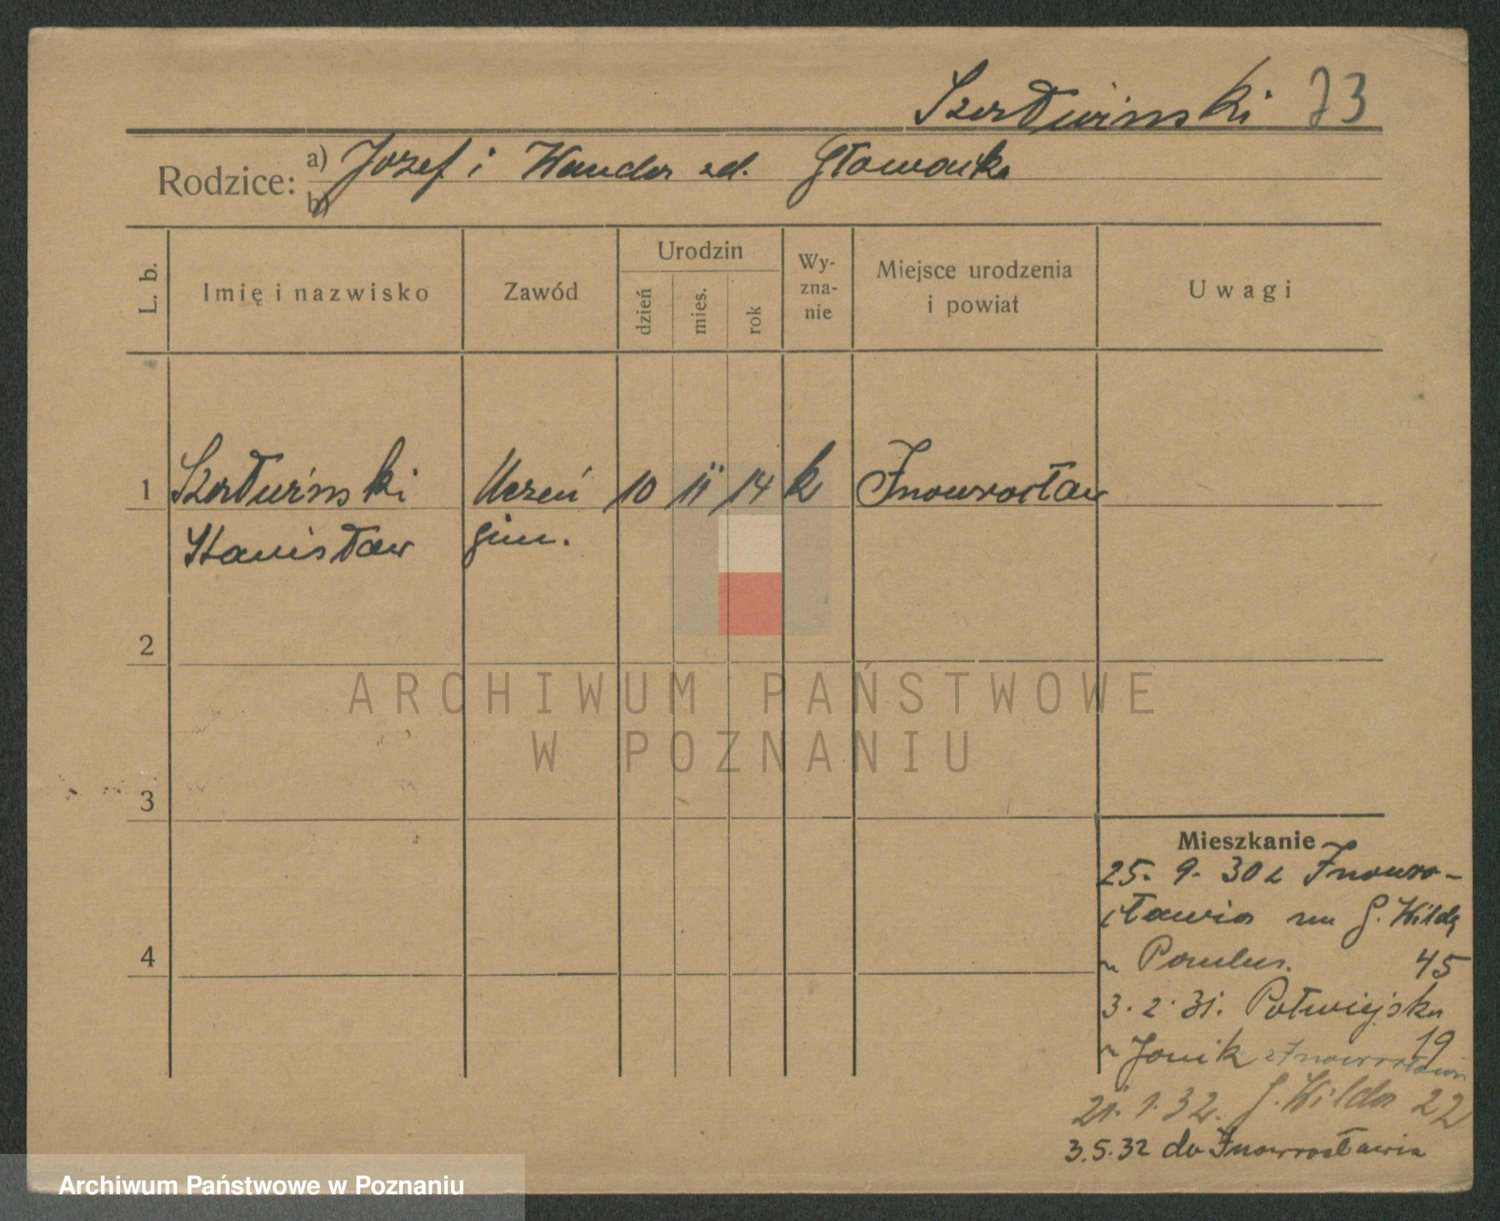 Szerłwiński 73
Rodzice: a) Józef i Wanda zd. Głowacka
b)
L. b.
Imię i nazwisko
Zawód
Urodzin
dzień
mies.
rok
Wy-
zna-
nie
Miejsce urodzenia
i powiat
Uwagi
1 Uczeń 10 11 14 k Inowrocław
Stanisław gim.
2
3
4
Mieszkanie
25. 9. 30 z Inowro-
cławia G. Wilda
45
3. 2. 31. Półwiejska
19
z Inowrocławia
21. 1. 32. G. Wilda 22
3.5.32 do Inowrocławia
ARCHIWUM PAŃSTWOWE
W POZNANIU
Archiwum Państwowe w Poznaniu